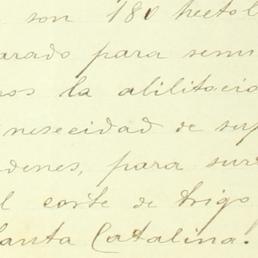 son 180 hectol
arado para sem
nos la abilitocio
nesecidad de su
denes, para sur
l corte de trigo
Santa Catalina.